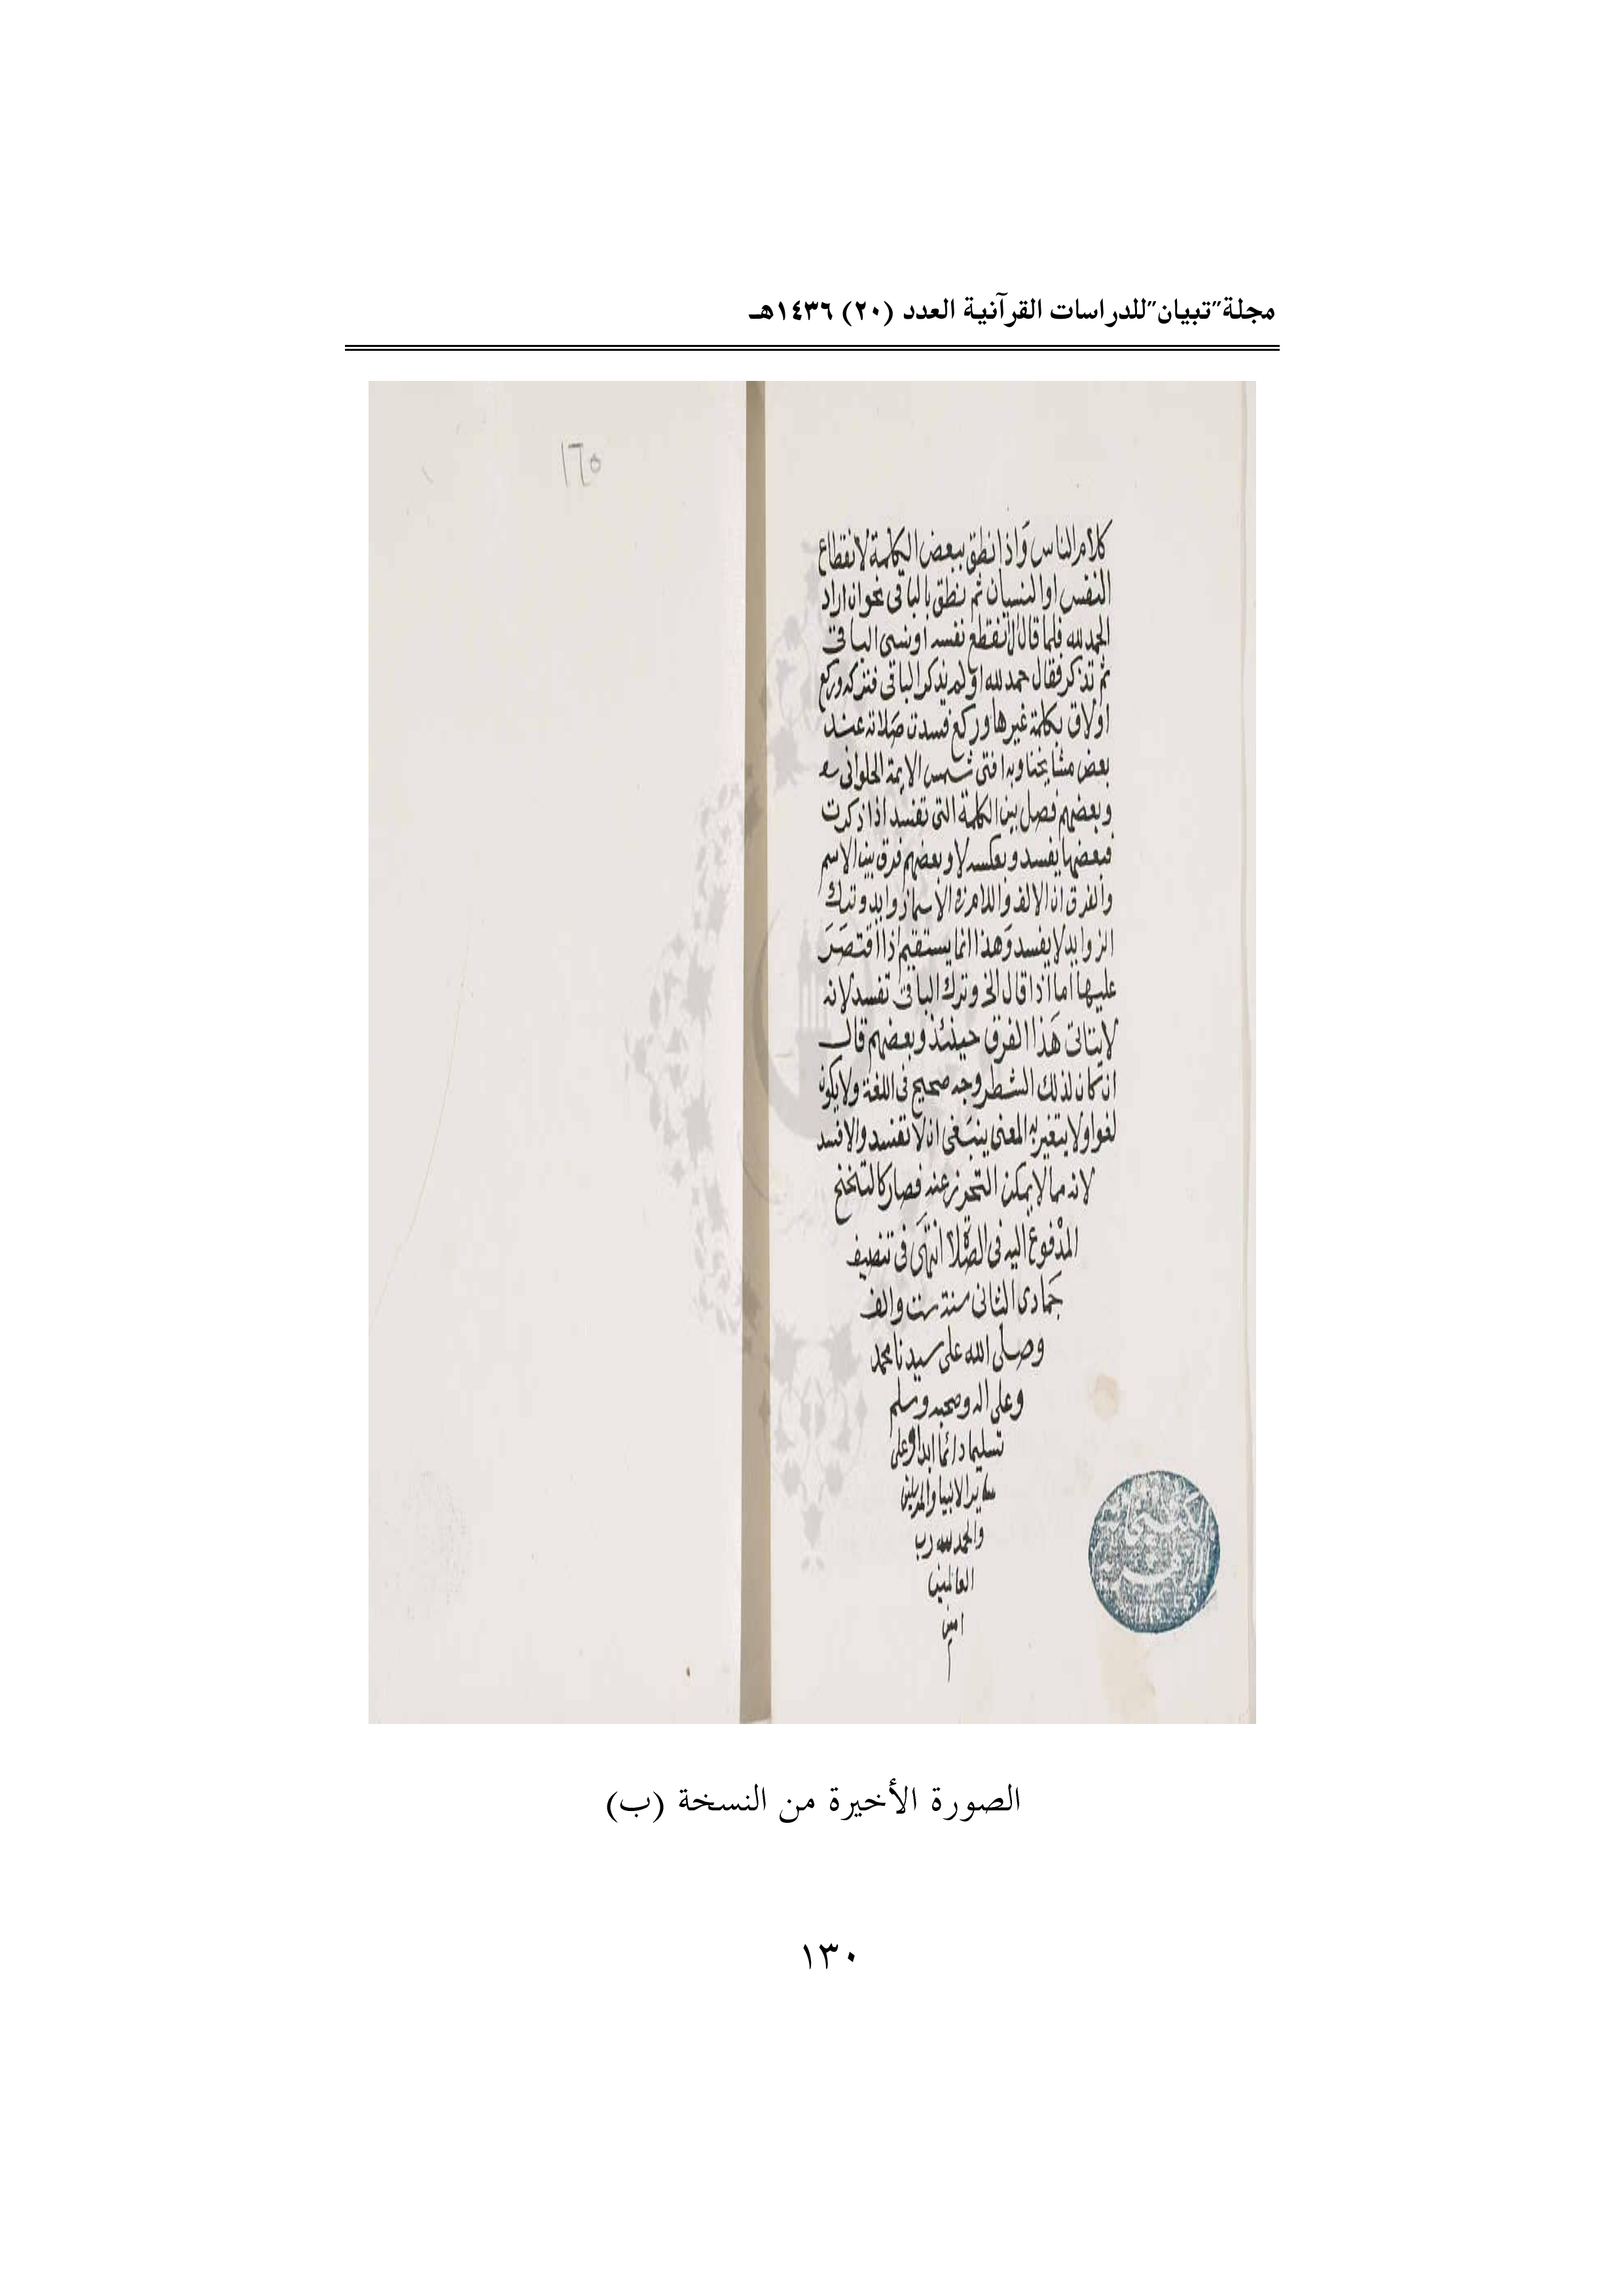 مجلة"تبيان"للدراسات القرآنية العدد (٢٠) ١٤٣٦هـ
١٦٥
كلام الناس واذا نطق ببعض الكلمة لانقطاع
النفس او النسيان ثم نطق بالباقى نحو ان اراد
الحمد لله فلما قال ال انقطع نفسه او نسى الباقى
ثم تذكر فقال حمد لله او لم يذكر الباقى فتركه وركع
اولاق بكلمة غيرها وركع فسدت صلاته عند
بعض مشايخنا وبه افتى شمس الايمة الحلوانى
وبعضهم فصل بين الكلمة التى تفسد اذا ذكرت
فبعضها يفسد وبعكسه لا وبعضهم فرق بين الاسم
والفرق ان الالف واللام فى الاسما زوايد وترك
الزوايد لا يفسد وهذا انما يستقيم اذا اقتصر
عليها اما اذا قال الخ وترك الباقى تفسد لانه
لا يتاتى هذا الفرق حينئذ وبعضهم قال
ان كان لذلك الشطر وجه صحيح فى اللغة ولا يكون
لغوا ولا يتغير به المعنى ينبغى ان لا تفسد والا فسد
لانه مما لا يمكن التحرز عنه فصار كالتنحنح
المدفوع اليه فى الصلاة انتهى فى تنصيف
جمادى الثانى سنة ست والف
وصلى الله على سيدنا محمد
وعلى اله وصحبه وسلم
تسليما دائما ابدا وعلى
ساير الانبيا والمرسلين
والحمد لله رب
العالمين
امين
الصورة الأخيرة من النسخة (ب)
١٣٠